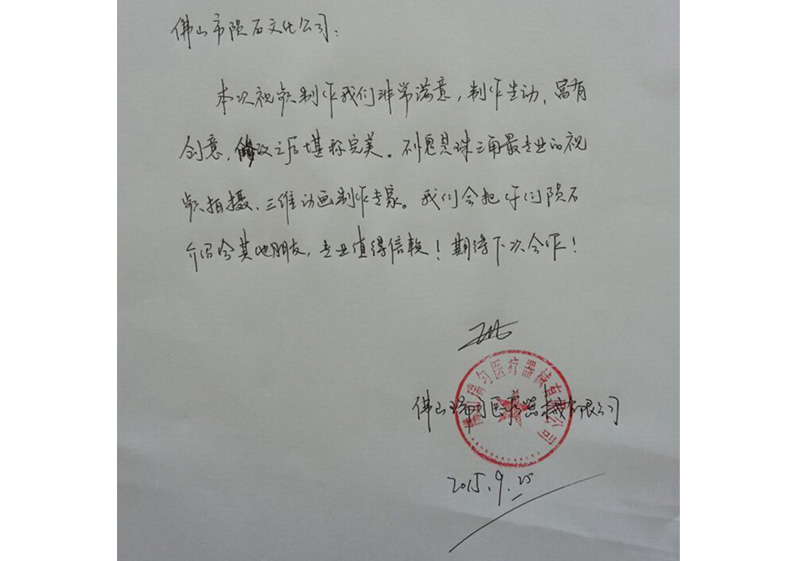 佛山市陨石文化公司：
本次视频制作我们非常满意，制作生动、富有
创意，修改之后堪称完美。不愧是珠三角最专业的视
频拍摄、三维动画制作专家。我们会把你们陨石
介绍给其他朋友，专业值得信赖！期待下次合作！
佛山瑞匀医疗器械有限公司
佛山瑞匀医疗器械有限公司
2015.9.25